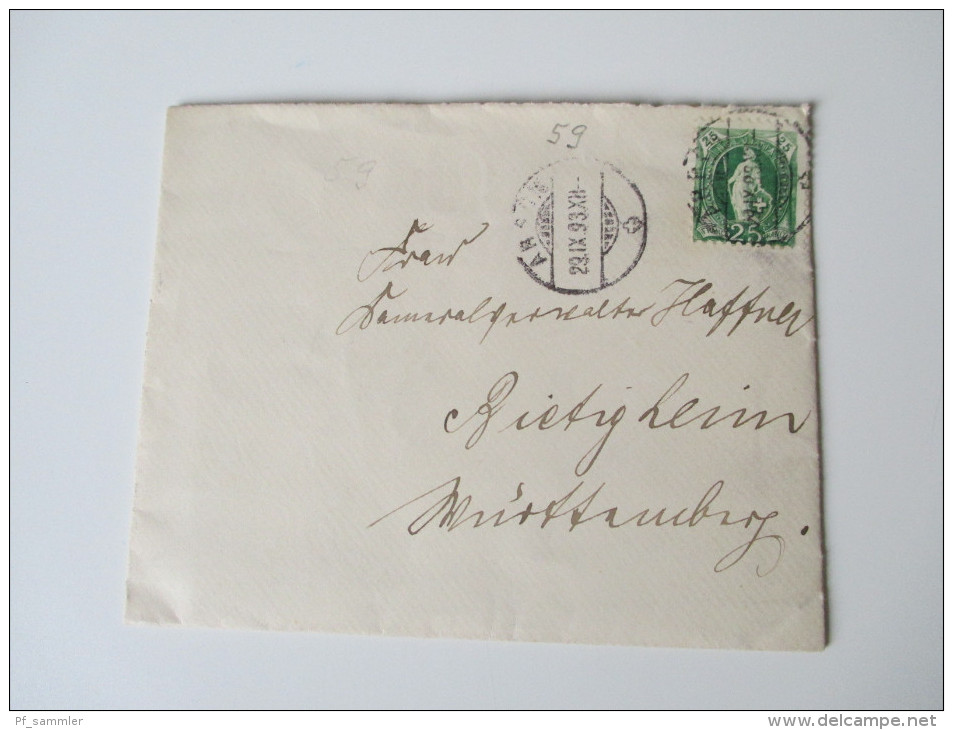 59
59
25 25
29.IX.93.XII-
25
Frau
Kameralverwalter Haffner
Bietigheim
Württemberg.
Pf_sammler
www.delcampe.net